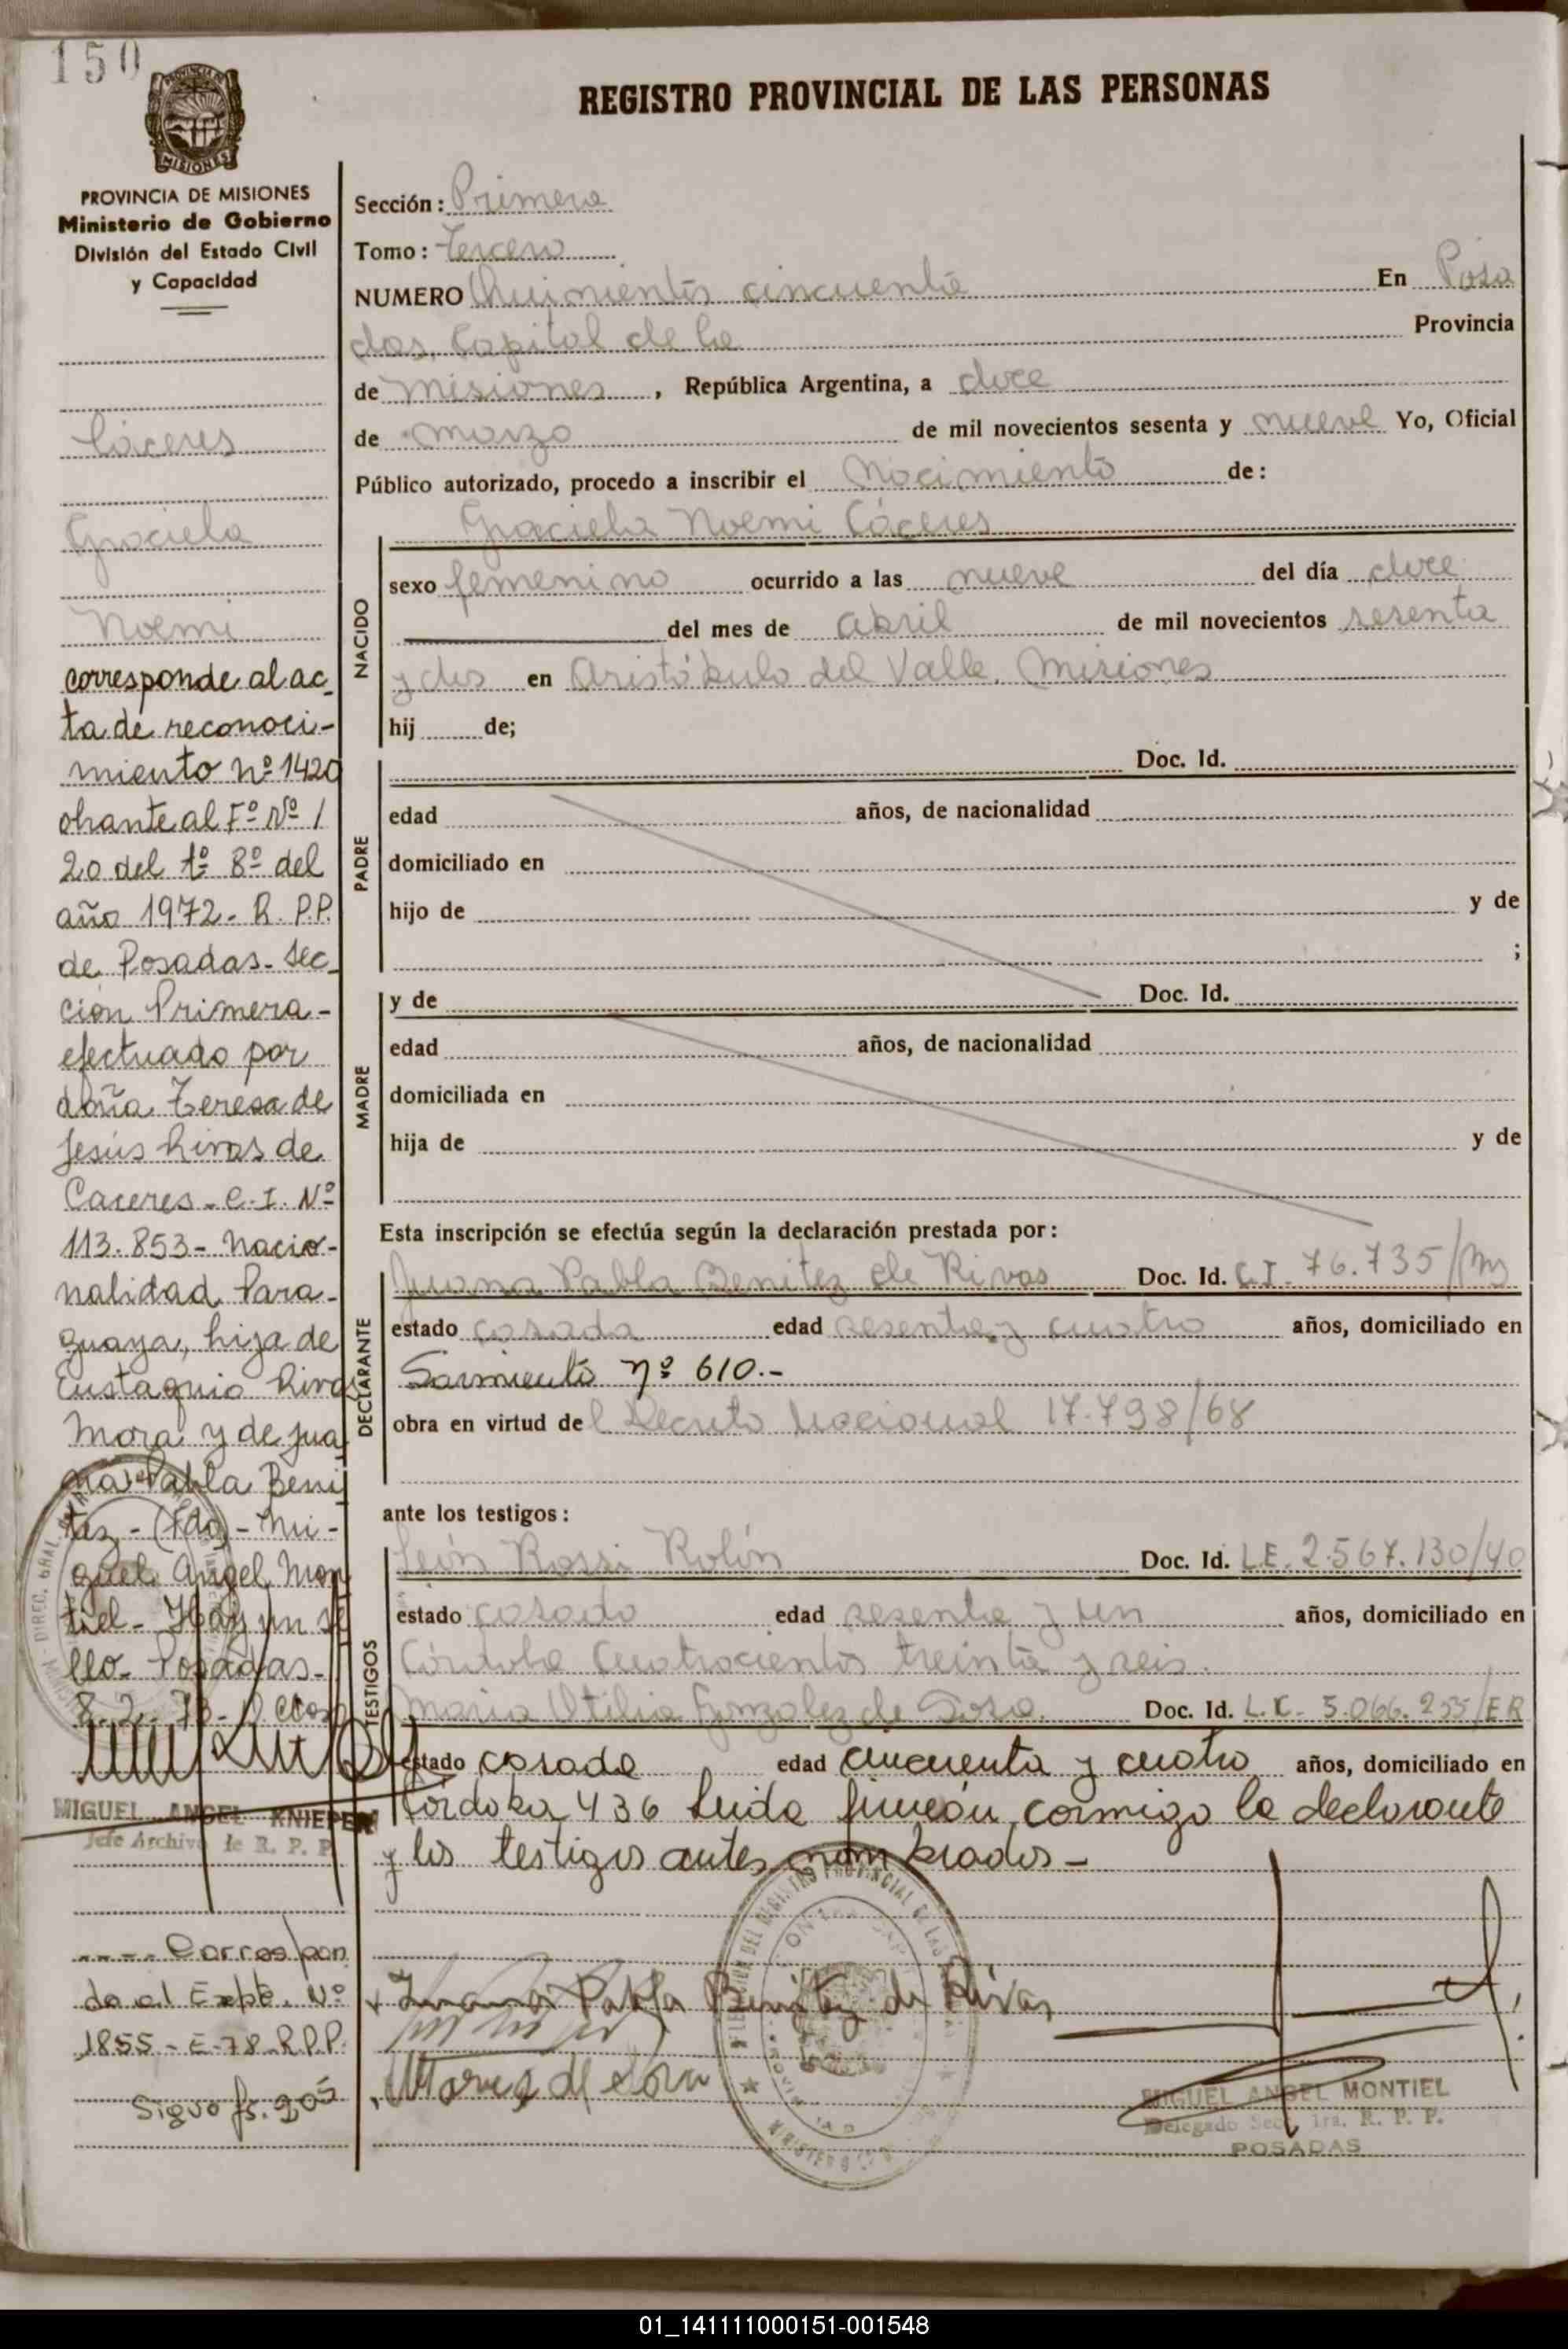 150
REGISTRO PROVINCIAL DE LAS PERSONAS
PROVINCIA DE MISIONES
Ministerio de Gobierno
División del Estado Civil
y Capacidad
Cáceres
Graciela
Noemi
corresponde al ac-
ta de reconoci-
miento Nº 1420
obrante al Fº Nº 1
20 del 1º 8º del
año 1972- R.P.P.
de Posadas- Sec-
ción Primera-
efectuado por
doña Teresa de
Jesús Rivas de
Caceres- C.I. Nº
113.853- Nacio-
nalidad Para-
guaya, hija de
Eustaquio Rivas
Mora y de Jua
na Pabla Beni
tez- (Fdo)- Mi-
guel Angel Mon
tiel- Hay un se
llo- Posadas-
8-2-78-
MIGUEL ANGEL KNIEPER
Jefe Archivo de R. P. P.
---- Corres pon
de al Expte. Nº
1855-E-78-R.P.P.
Sigue fs. 205
Sección: Primera
Tomo: tercero
NUMERO Quinientos cincuenta En Posa
das, Capital de la Provincia
de Misiones, República Argentina, a doce
de marzo de mil novecientos sesenta y nueve Yo, Oficial
Público autorizado, procedo a inscribir el Nacimiento de:
Graciela Noemi Cáceres
NACIDO
sexo femenino ocurrido a las nueve del día doce
del mes de abril de mil novecientos sesenta
y dos en Aristóbulo del Valle, Misiones
hij de;
PADRE
Doc. Id.
edad años, de nacionalidad
domiciliado en
hijo de y de
;
MADRE
y de Doc. Id.
edad años, de nacionalidad
domiciliada en
hija de y de
Esta inscripción se efectúa según la declaración prestada por:
DECLARANTE
Juana Pabla Benitez de Rivas Doc. Id. C.I. 76.735/Ms
estado casada edad sesenta y cuatro años, domiciliado en
Sarmiento Nº 610.-
obra en virtud del Decreto Nacional 17.798/68
ante los testigos:
TESTIGOS
León Rossi Rolón Doc. Id. L.E. 2.567.130/40
estado casado edad sesenta y un años, domiciliado en
Córdoba Cuatrocientos treinta y seis.
Maria Otilia Gonzalez de Sosa Doc. Id. L.C. 5.066.255/ER
estado casada edad cincuenta y cuatro años, domiciliado en
Córdoba 436 Leida firman conmigo la declarante
y los testigos antes nombrados-
Juana Pabla Benitez de Rivas
MIGUEL ANGEL MONTIEL
Delegado Secc. 1ra. R. P. P.
POSADAS
01_141111000151-001548